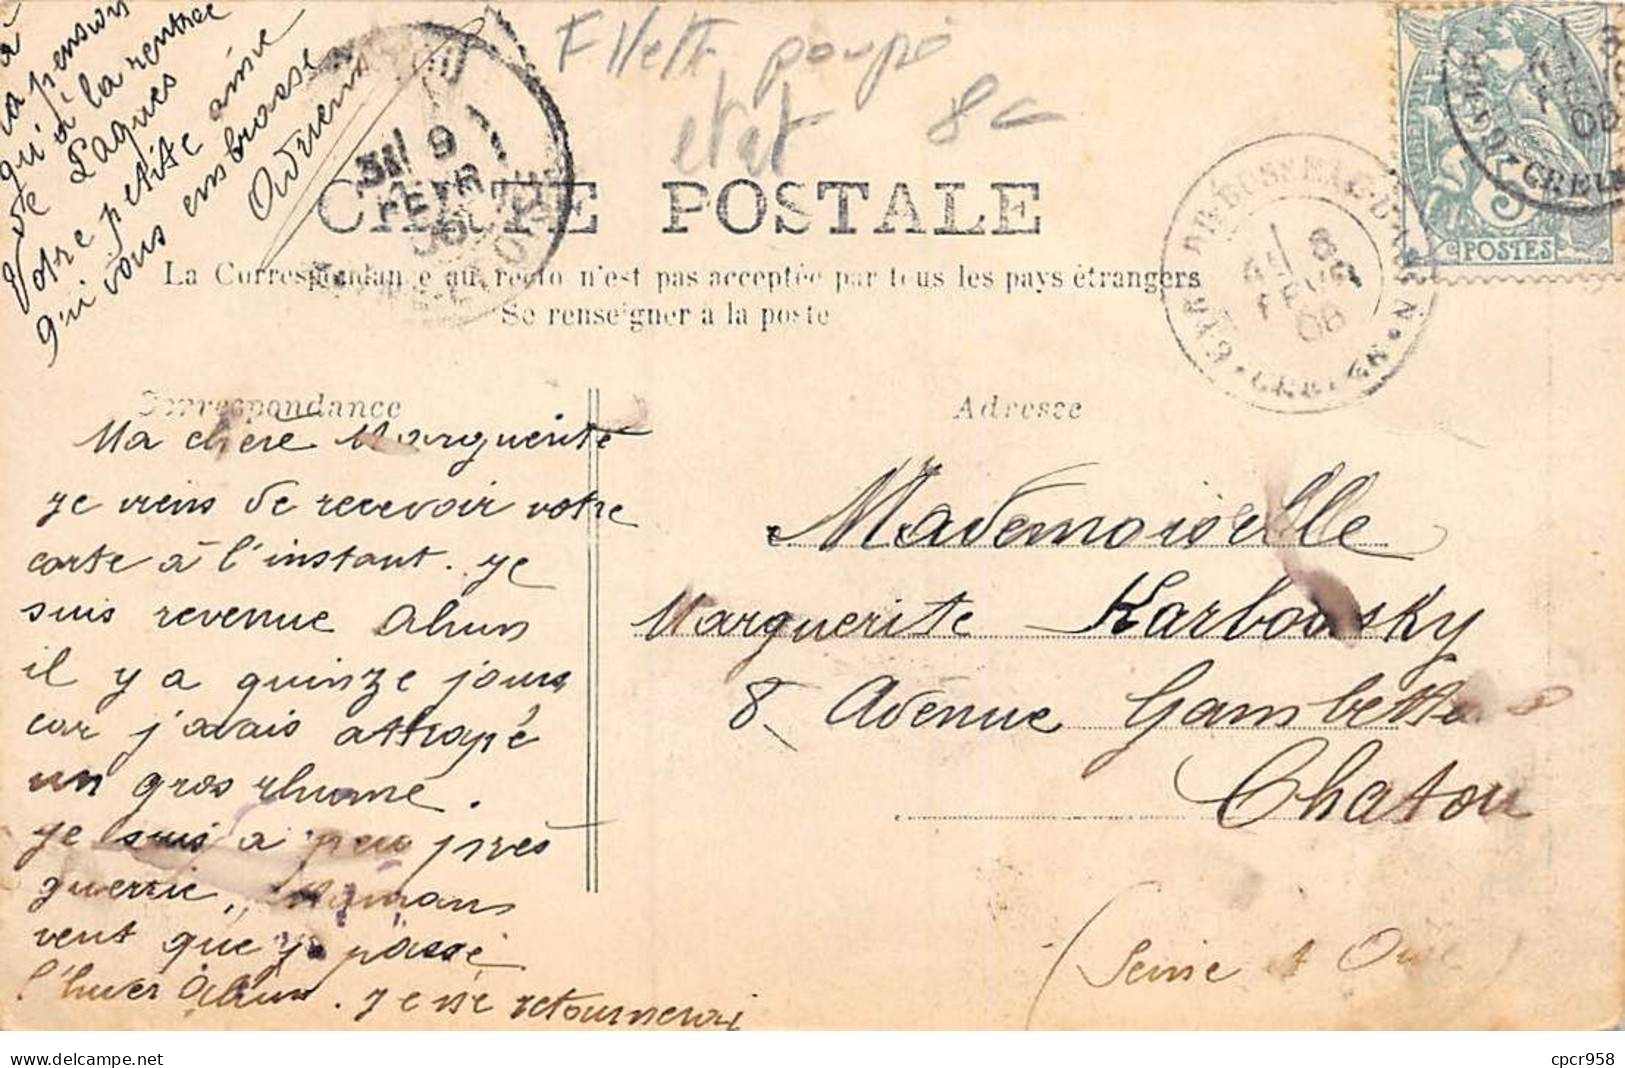 à
la pension
qu'à la rentrée
de Paques
Votre petite amie
qui vous embrasse
Fillette poupé
etat
8
9
FEVR
CARTE POSTALE
La Correspondance au recto n'est pas acceptée par tous les pays étrangers
Se renseigner à la poste
8
06
5
POSTES
Correspondance
Adresse
Ma chère Marguerite
je viens de recevoir votre
carte à l'instant. je
suis revenue Ahun
il y a quinze jours
car j'avais attrapé
un gros rhume.
je suis a peu près
guerrie, Maman
veut que je passe
l'hiver Ahun. je ne retournerai
Mademoiselle
Marguerite Karbowsky
8 Avenue Gambetta
Chatou
(Seine et Oise)
cpcr958